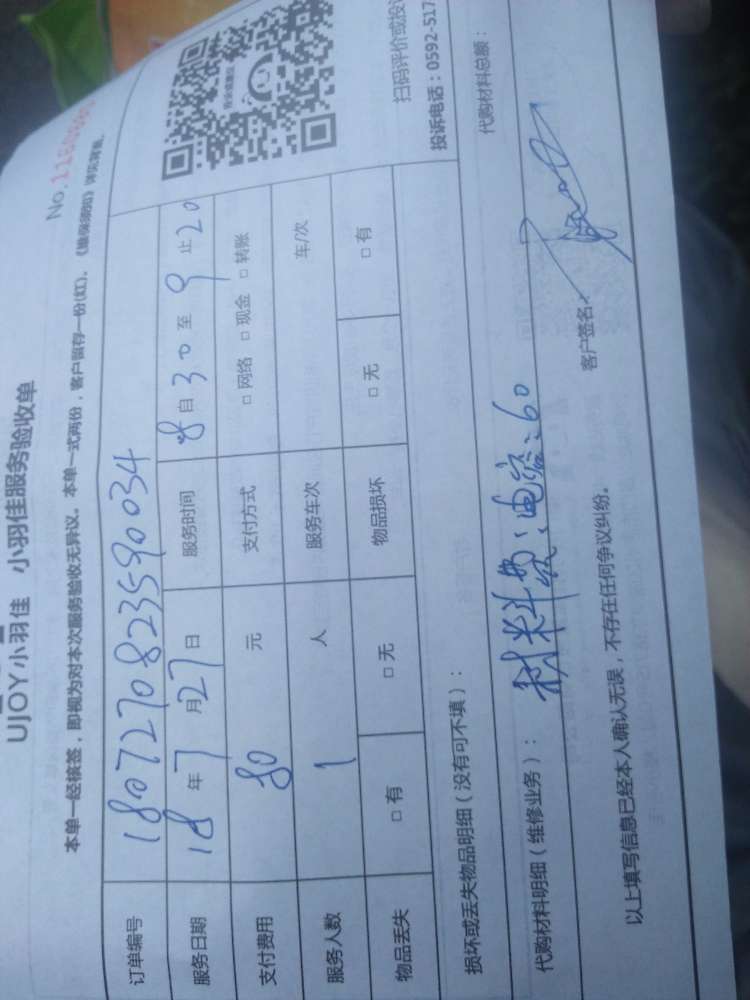 UJOY小羽佳 小羽佳服务验收单
No.
本单一经核签，即视为对本次服务验收无异议。本单一式两份，客户留存一份(红)。《维保须知》详见背面。
订单编号 1807270823590034
服务日期 18 年 7 月 27 日 服务时间 8 自 30 至 9 止 20
支付费用 80 元 支付方式 □ 网络 □ 现金 □ 转账
服务人数 1 人 服务车次 车/次
物品丢失 □ 有 □ 无 物品损坏 □ 无 □ 有
扫码评价或投诉
投诉电话：0592-517
损坏或丢失物品明细（没有可不填）：
代购材料明细（维修业务）： 材料费：电容：60
代购材料总额：
以上填写信息已经本人确认无误，不存在任何争议纠纷。
客户签名：